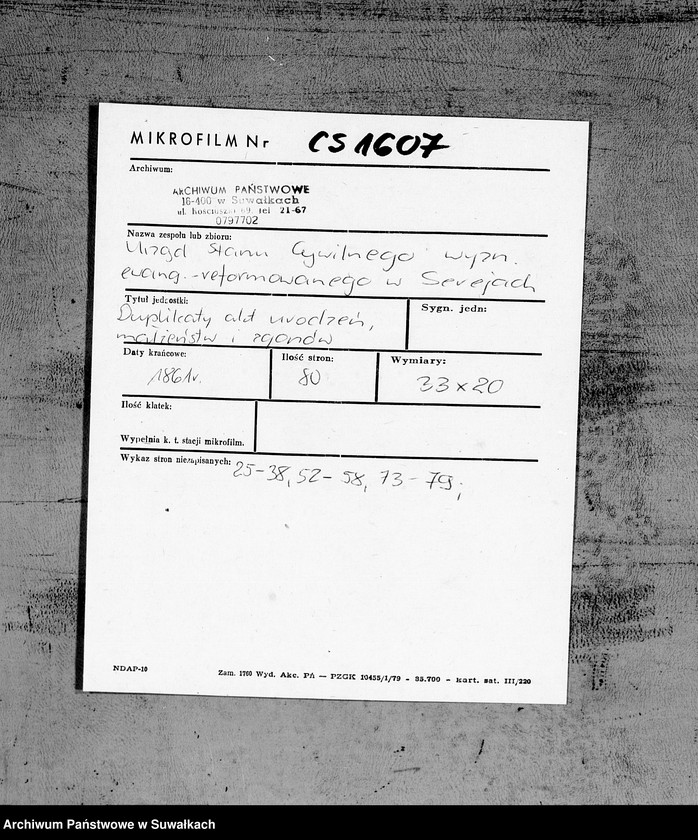 MIKROFILM Nr CS 1607
Archiwum:
ARCHIWUM PAŃSTWOWE
16-400 w Suwałkach
ul. Kościuszki 69, tel 21-67
0797702
Nazwa zespołu lub zbioru:
Urząd Stanu Cywilnego wyzn.
ewang.-reformowanego w Serejach
Tytuł jednostki:
Duplikaty akt urodzeń,
małżeństw i zgonów
Sygn. jedn:
Daty krańcowe:
1861r.
Ilość stron:
80
Wymiary:
33 x 20
Ilość klatek:
Wypełnia k. t. stacji mikrofilm.
Wykaz stron niezapisanych: 25-38, 52-58, 73-79;
NDAP-10
Zam. 1760 Wyd. Akc. Pń — PZGK 10455/1/79 - 35.700 - kart. sat. III/220
Archiwum Państwowe w Suwałkach